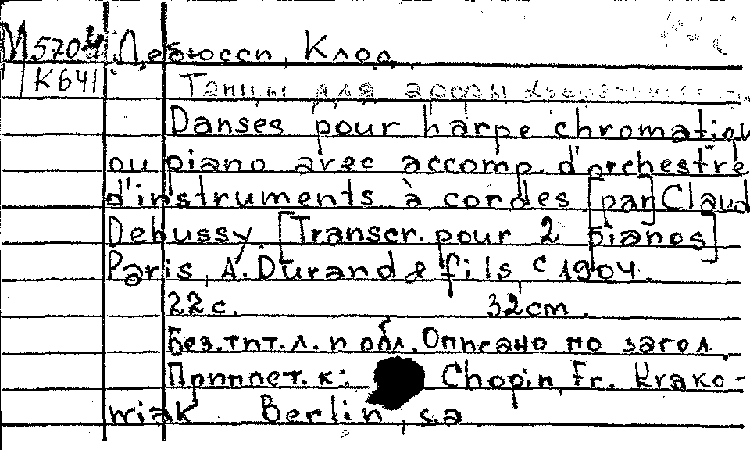 М5704 Дебюсси, Клод.
К641 Танцы для арфы
Danses pour harpe chromatiqu
ou piano avec accomp. d'orchestre
d'instruments à cordes [par] Claud
Debussy. [Transcr. pour 2 pianos]
Paris, A. Durand & fils c 1904.
22 с. 32 cm.
Без. тит. л. и обл. Описано по загол.
Приплет. к: Chopin, Fr. Krako-
wiak Berlin, s.a